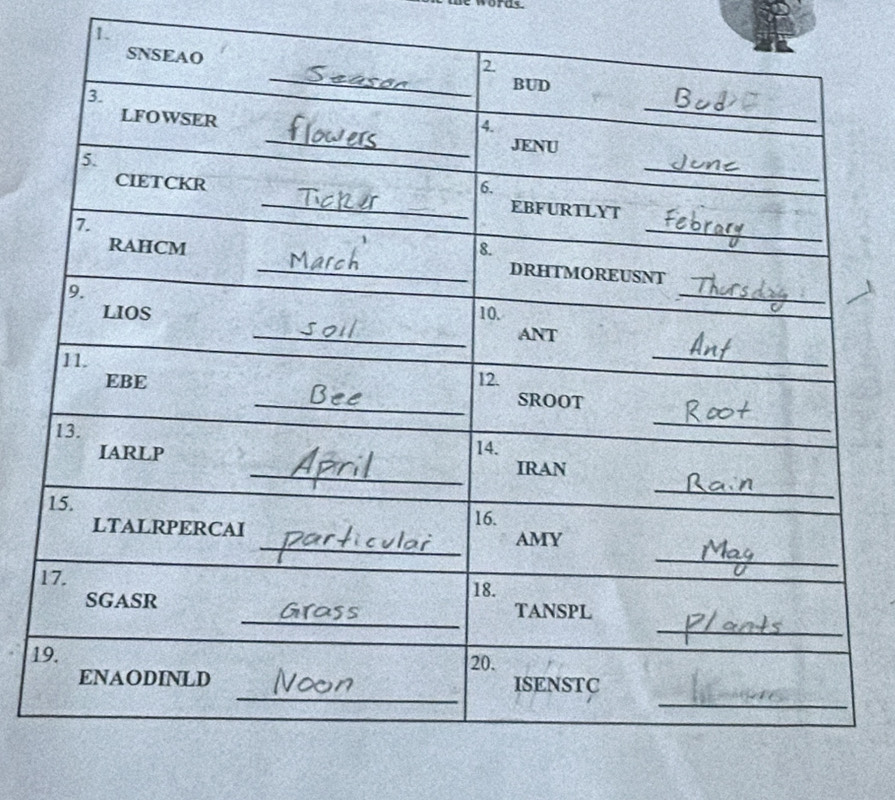 words.
1. SNSEAO Season 2. BUD Bud
3. LFOWSER flowers 4. JENU June
5. CIETCKR Ticker 6. EBFURTLYT Febrary
7. RAHCM March 8. DRHTMOREUSNT Thursday
9. LIOS soil 10. ANT Ant
11. EBE Bee 12. SROOT Root
13. IARLP April 14. IRAN Rain
15. LTALRPERCAI particular 16. AMY May
17. SGASR Grass 18. TANSPL Plants
19. ENAODINLD Noon 20. ISENSTC